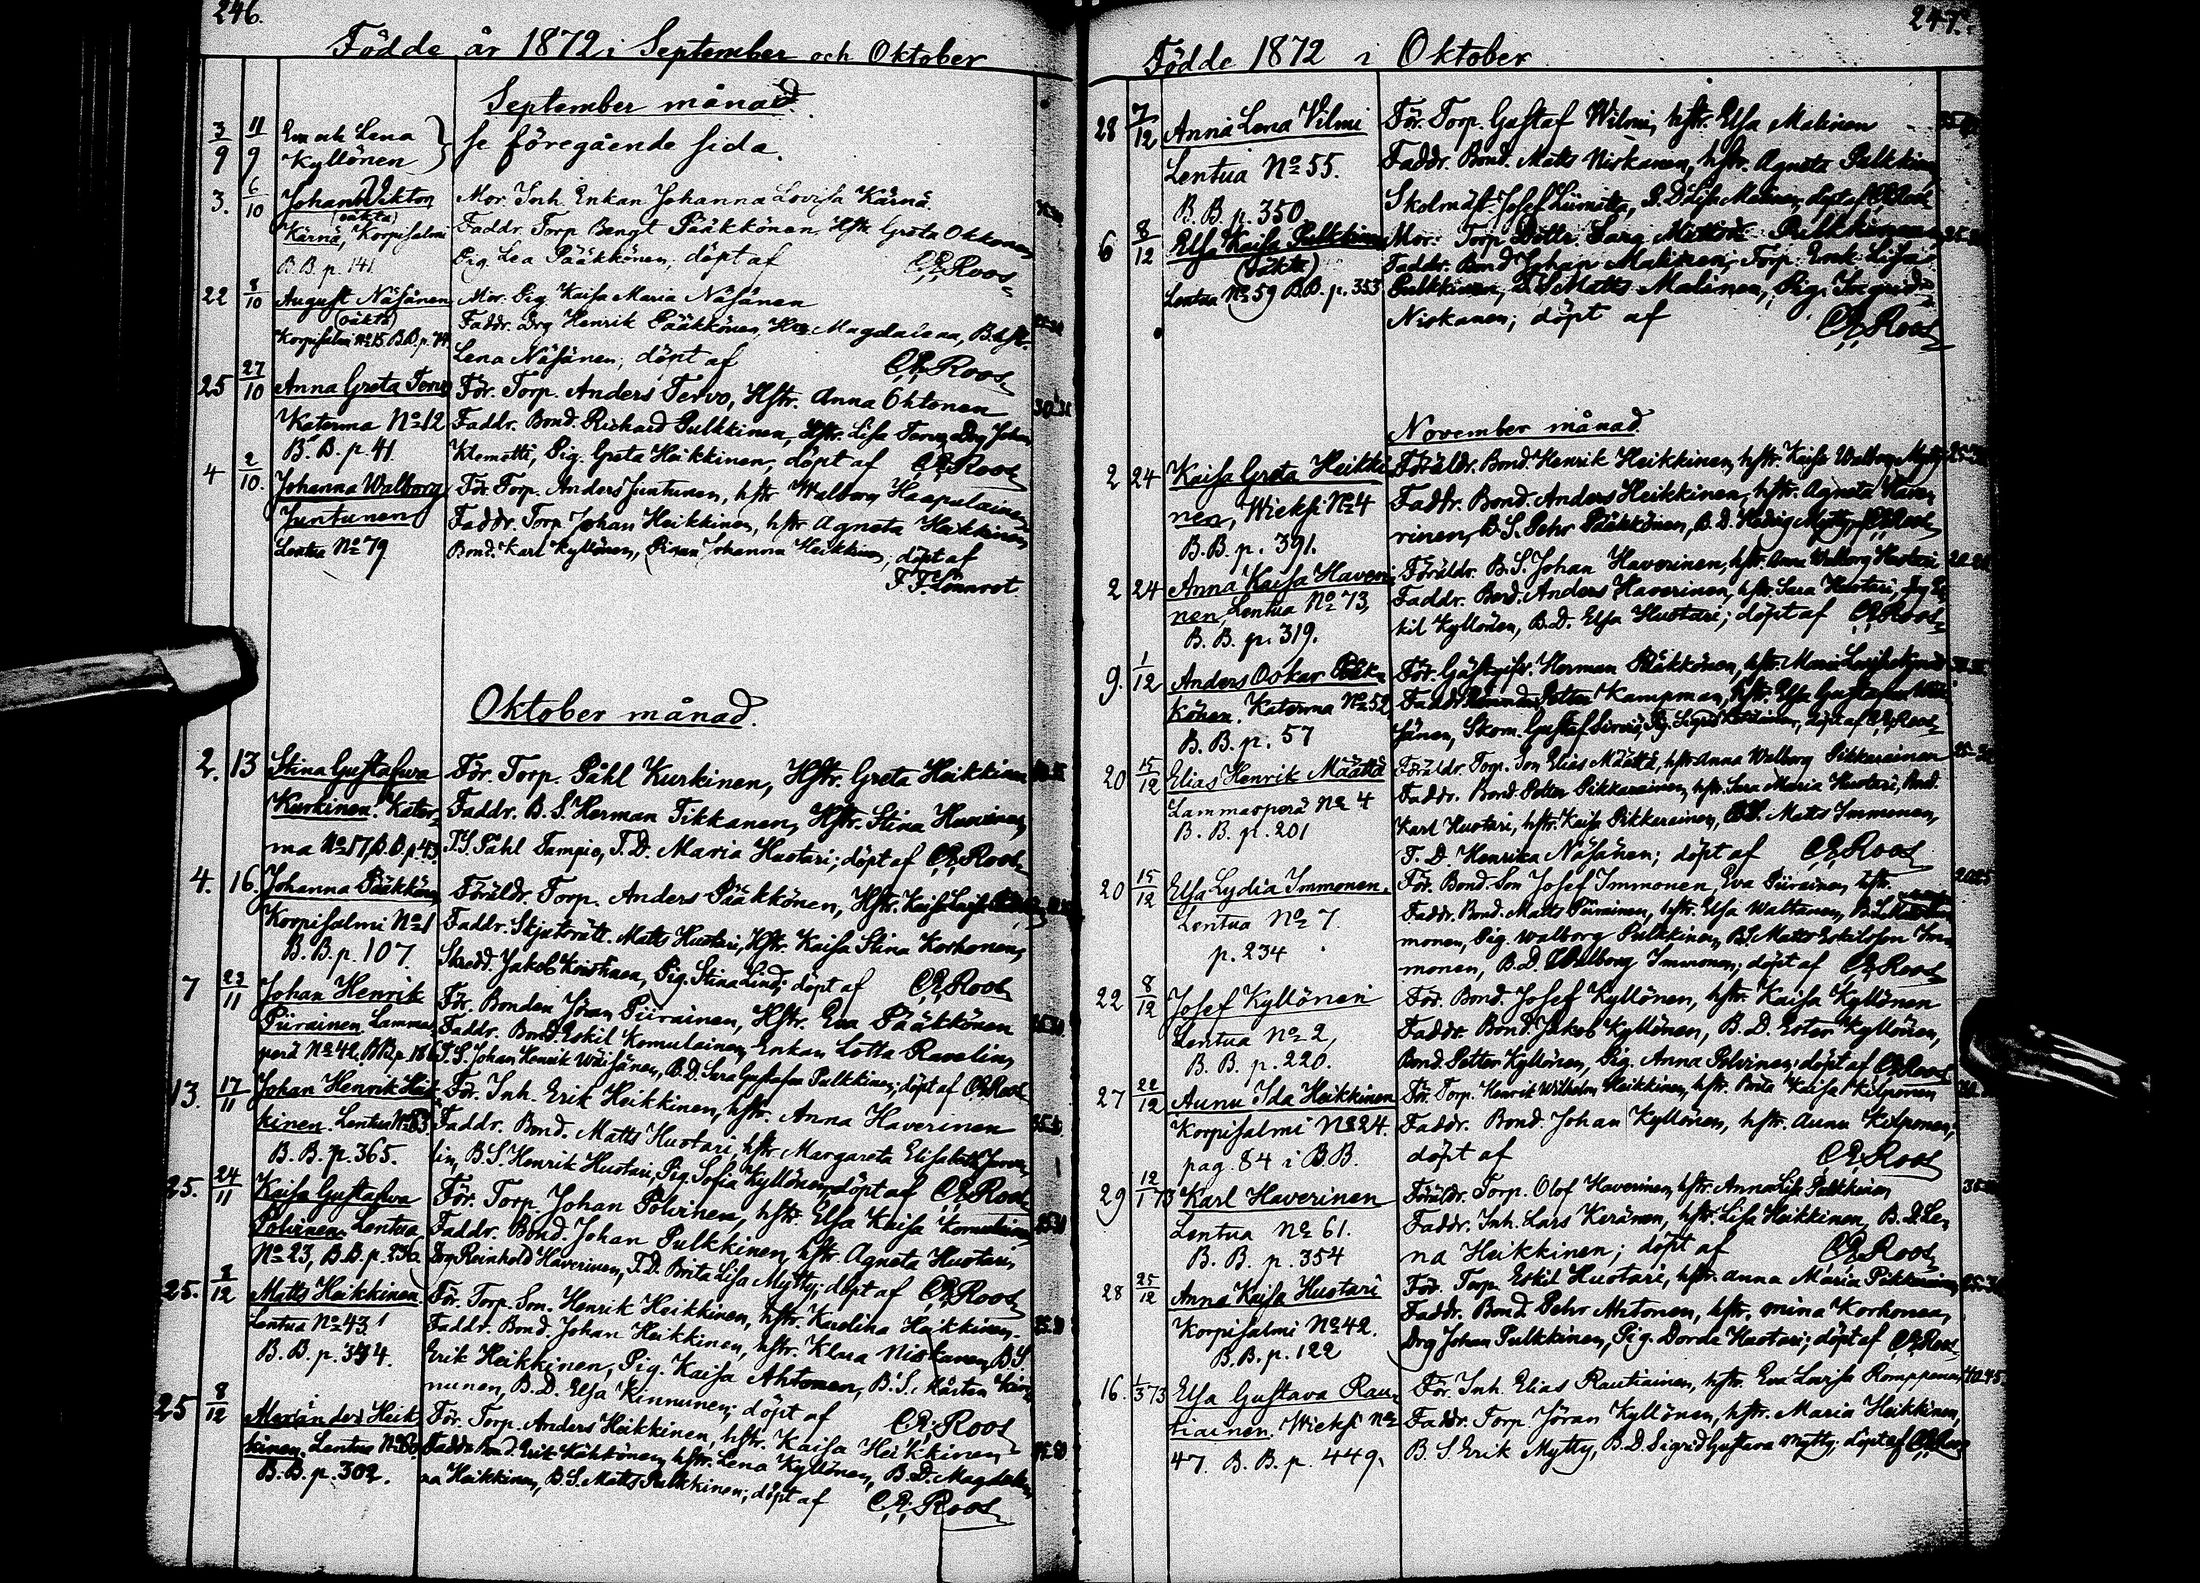 246.
Födde år 1872 i September och Oktober
September månad.
3/9 11/9 Eva och Lena Kyllönen } se föregående sida.
3. 6/10 Johan Viktor
(oäkta)
Kärnä, Korpisalmi
B. B. p. 141
Mor. Inh. Enkan Johanna Lovisa Kärnä.
Faddr. Torp Bengt Pääkkönen, Hstr Greta Okkonen,
Pig. Lea Pääkkönen, döpt af C.E. Roos
22 8/10 August Näsänen
(oäkta)
Korpisalmi No 15 B.B. p. 74
Mor. Pig. Kaisa Maria Näsänen
Faddr. Drg Henrik Pääkkönen, Magdalena,
Lena Näsänen; döpt af C.E. Roos
25 27/10 Anna Greta Tervo
Katerma No 12
B. B. p. 41
För. Torp. Anders Tervo, Hstr. Anna Ohtonen 30.31
Faddr. Bond. Richard Pulkkinen, Hstr. Lisa Tervo, Drg Johan
Klemetti, Pig. Greta Heikkinen, döpt af C.E. Roos
4 2/10. Johanna Walborg
Juntunen
Lentua No 79
För. Torp. Anders Juntunen, hstr Walborg Haapalainen
Faddr. Torp Johan Heikkinen, hstr Agneta Heikkinen,
Bond. Karl Kyllönen, Johanna Heikkinen; döpt af
F. F. Lönnrot
Oktober månad.
2. 13 Stina Gustafva
Kurkinen. Kater-
ma No 17, B.B. p. 43
För. Torp. Påhl Kurkinen, Hstr. Greta Heikkinen
Faddr. B. S. Herman Tikkanen, Hstr. Stina
T.S. Påhl Tampio, T. D. Maria Huotari; döpt af C.E. Roos
4. 16. Johanna Pääkkönen
Korpisalmi No 1
B. B. p. 107.
Föräldr. Torp. Anders Pääkkönen, Hstr. Kaisa Lovisa
Faddr. Skjutsrätt. Matts Huotari, Hstr. Kaisa Stina Korhonen,
Skredd. Jakob Pig. Stina Lind; döpt af C.E. Roos
7 23/11 Johan Henrik
Piirainen. Lammas-
perä No 42, B.B. p. 186
För. Bonden Jöran Piirainen, Hstr. Eva Pääkkönen
Faddr. Bond. Eskil Komulainen, Enkan Lotta Ravelin,
T. S. Johan Henrik Väisänen, B.D. Sara Gustafva Pulkkinen; döpt af C.E. Roos
13. 17/11 Johan Henrik Heik-
kinen. Lentua No 83
B. B. p. 365.
För. Inh. Erik Heikkinen, hstr. Anna Haverinen
Faddr. Bond. Matts Huotari, hstr Margareta Elisabeth
lin, B.S. Henrik Huotari, Pig. Sofia Kyllönen; döpt af C.E. Roos
25. 24/11 Kaisa Gustafva
Polvinen. Lentua
No 23, B.B. p. 256.
För. Torp. Johan Polvinen, hstr. Elsa Kaisa Komulainen
Faddr. Bond. Johan Pulkkinen, hstr. Agneta Huotari,
Drg Reinhold Haverinen, T.D. Brita Lisa Mytty; döpt af C.E. Roos
25. 8/12 Matts Heikkinen
Lentua No 43
B. B. p. 344.
För. Torp. Son. Henrik Heikkinen, hstr. Karolina Heikkinen.
Faddr. Bond. Johan Heikkinen, hstr. Klara Niskanen, B.S.
Erik Heikkinen, Pig. Kaisa Ahtonen, B. S. Mårten Kin-
nunen, B. D. Elsa Kinnunen; döpt af C.E. Roos
25 8/12 Heik-
kinen. Lentua
B. B. p. 302.
För. Torp. Anders Heikkinen, hstr. Kaisa Heikkinen
Faddr. Bond. Erik hstr. Lena Kyllönen, B.D. Magdale-
na Heikkinen, B.S. Matts Pulkkinen; döpt af C.E. Roos
247.
Födde 1872 i Oktober
28 7/12 Anna Lena Vilmi
Lentua No 55.
B. B. p. 350.
För. Torp. Gustaf Wilmi, hstr. Elsa Malinen
Faddr. Bond. Matts Niskanen, hstr. Agneta Pulkkinen
Skolmäst. Josef Liimatta, Lisa Malinen, döpt af C.E. Roos
6 8/12 Elsa Kaisa Pulkkinen
(oäkta)
Lentua No 59 B.B. p. 353
Mor: Torp. Dottr. Sara Pulkkinen
Faddr. Bond Johan Malinen, Torp. Enk. Lisa
Pulkkinen, Matts Malinen, Pig. Ingrid
Niskanen; döpt af C.E. Roos
November månad.
2 24 Kaisa Greta Heikki-
nen, Wieksi No 4
B. B. p. 391.
Föräldr. Bond. Henrik Heikkinen, hstr. Kaisa Walborg Mytty
Faddr. Bond. Anders Heikkinen, hstr. Agneta Have-
rinen, B. S. Pehr Pääkkönen, B. D. Hedvig Mytty, C.E. Roos
2 24 Anna Kaisa Haveri-
nen, Lentua No 73,
B. B. p. 319.
Föräldr. B. S. Johan Haverinen, hstr. Anna Walborg Huotari
Faddr. Bond. Anders Haverinen, hstr. Sara Huotari, Drg Es-
kil Kyllönen, B.D. Elsa Huotari; döpt af C.E. Roos
9. 1/12 Anders Oskar Pääk-
könen. Katerma No 52
B. B. p. 57
För. Gästgifv. Herman Pääkkönen, hstr. Maria Lovisa
Faddr. Petter Kampman, hstr. Elsa Gustafva Väi-
sänen, Skom. Gustaf Pig. Sigrid döpt af C.E. Roos
20 15/12 Elias Henrik Määttä
Lammasperä No 4
B. B. p. 201
Föräldr. Torp. Son Elias Määttä, hstr Anna Walborg Pikkarainen
Faddr. Bond. Petter Pikkarainen, hstr. Sara Maria Huotari, Bond.
Karl Huotari, hstr. Kaisa Pikkarainen, Matts Immonen,
T. D. Henrika Näsänen; döpt af C.E. Roos
20 15/12 Elsa Lydia Immonen.
Lentua No 7.
p. 234
För. Bond. Son Josef Immonen, Eva Piirainen, hstr. 20.25
Faddr. Bond. Matts Piirainen, hstr. Elsa Waltanen,
monen, Pig. Walborg Pulkkinen, B.S. Matts Eskilsson Im-
monen, B.D. Walborg Immonen; döpt af C.E. Roos
22 8/12 Josef Kyllönen
Lentua No 2,
B. B. p. 220.
För. Bond. Josef Kyllönen, hstr. Kaisa Kyllönen
Faddr. Bond Jakob Kyllönen, B. D. Ester Kyllönen,
Bond. Petter Kyllönen, Pig. Anna Polvinen; döpt af C.E. Roos
27 22/12 Aunu Ida Heikkinen
Korpisalmi No 24.
pag. 84 i B.B.
För. Torp. Henrik Wilhelm Heikkinen, hstr. Brita Kaisa Kilponen
Faddr. Bond. Johan Kyllönen, hstr. Aunu Kilponen;
döpt af C.E. Roos
29 12/1 73 Karl Haverinen
Lentua No 61.
B. B. p. 354
Föräldr. Torp. Olof Haverinen, hstr. Anna Lisa Pulkkinen
Faddr. Inh. Lars Keränen, hstr. Lisa Heikkinen, B. D. Le-
na Heikkinen; döpt af C.E. Roos
28 25/12 Anna Kaisa Huotari
Korpisalmi No 42.
B. B. p. 122
För. Torp. Eskil Huotari, hstr. Anna Maria Pikkarainen
Faddr. Bond. Pehr Ahtonen, hstr. Mina Korhonen,
Drg Johan Pulkkinen, Pig. Dorda Huotari; döpt af C.E. Roos
16. 1/3 73 Elsa Gustava Rau-
tiainen. Wieksi No
47. B. B. p. 449.
För. Inh. Elias Rautiainen, hstr. Eva Lovisa Romppanen 40.45
Faddr. Torp Jöran Kyllönen, hstr. Maria Heikkinen,
B. S. Erik Mytty, B. D. Sigrid Gustava Mytty; döpt af C.E. Roos